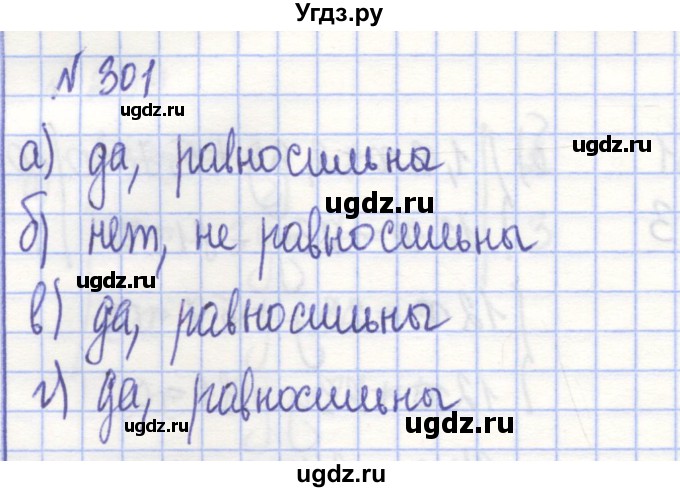 Угдз.ру
№ 301
ugdz.ru
а) да, равносильны
ugdz.ru
ugdz.ru
б) нет, не равносильны
ugdz.ru
в) да, равносильны
ugdz.ru
г) да, равносильны
ugdz.ru
ugdz.ru
ugdz.ru